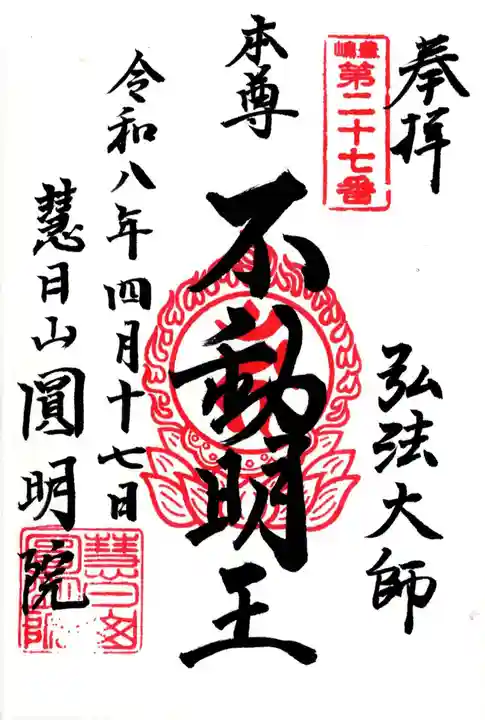 奉拝
豊嶋
第二十七番
弘法大師
本尊
不動明王
令和八年四月十七日
慧日山圓明院